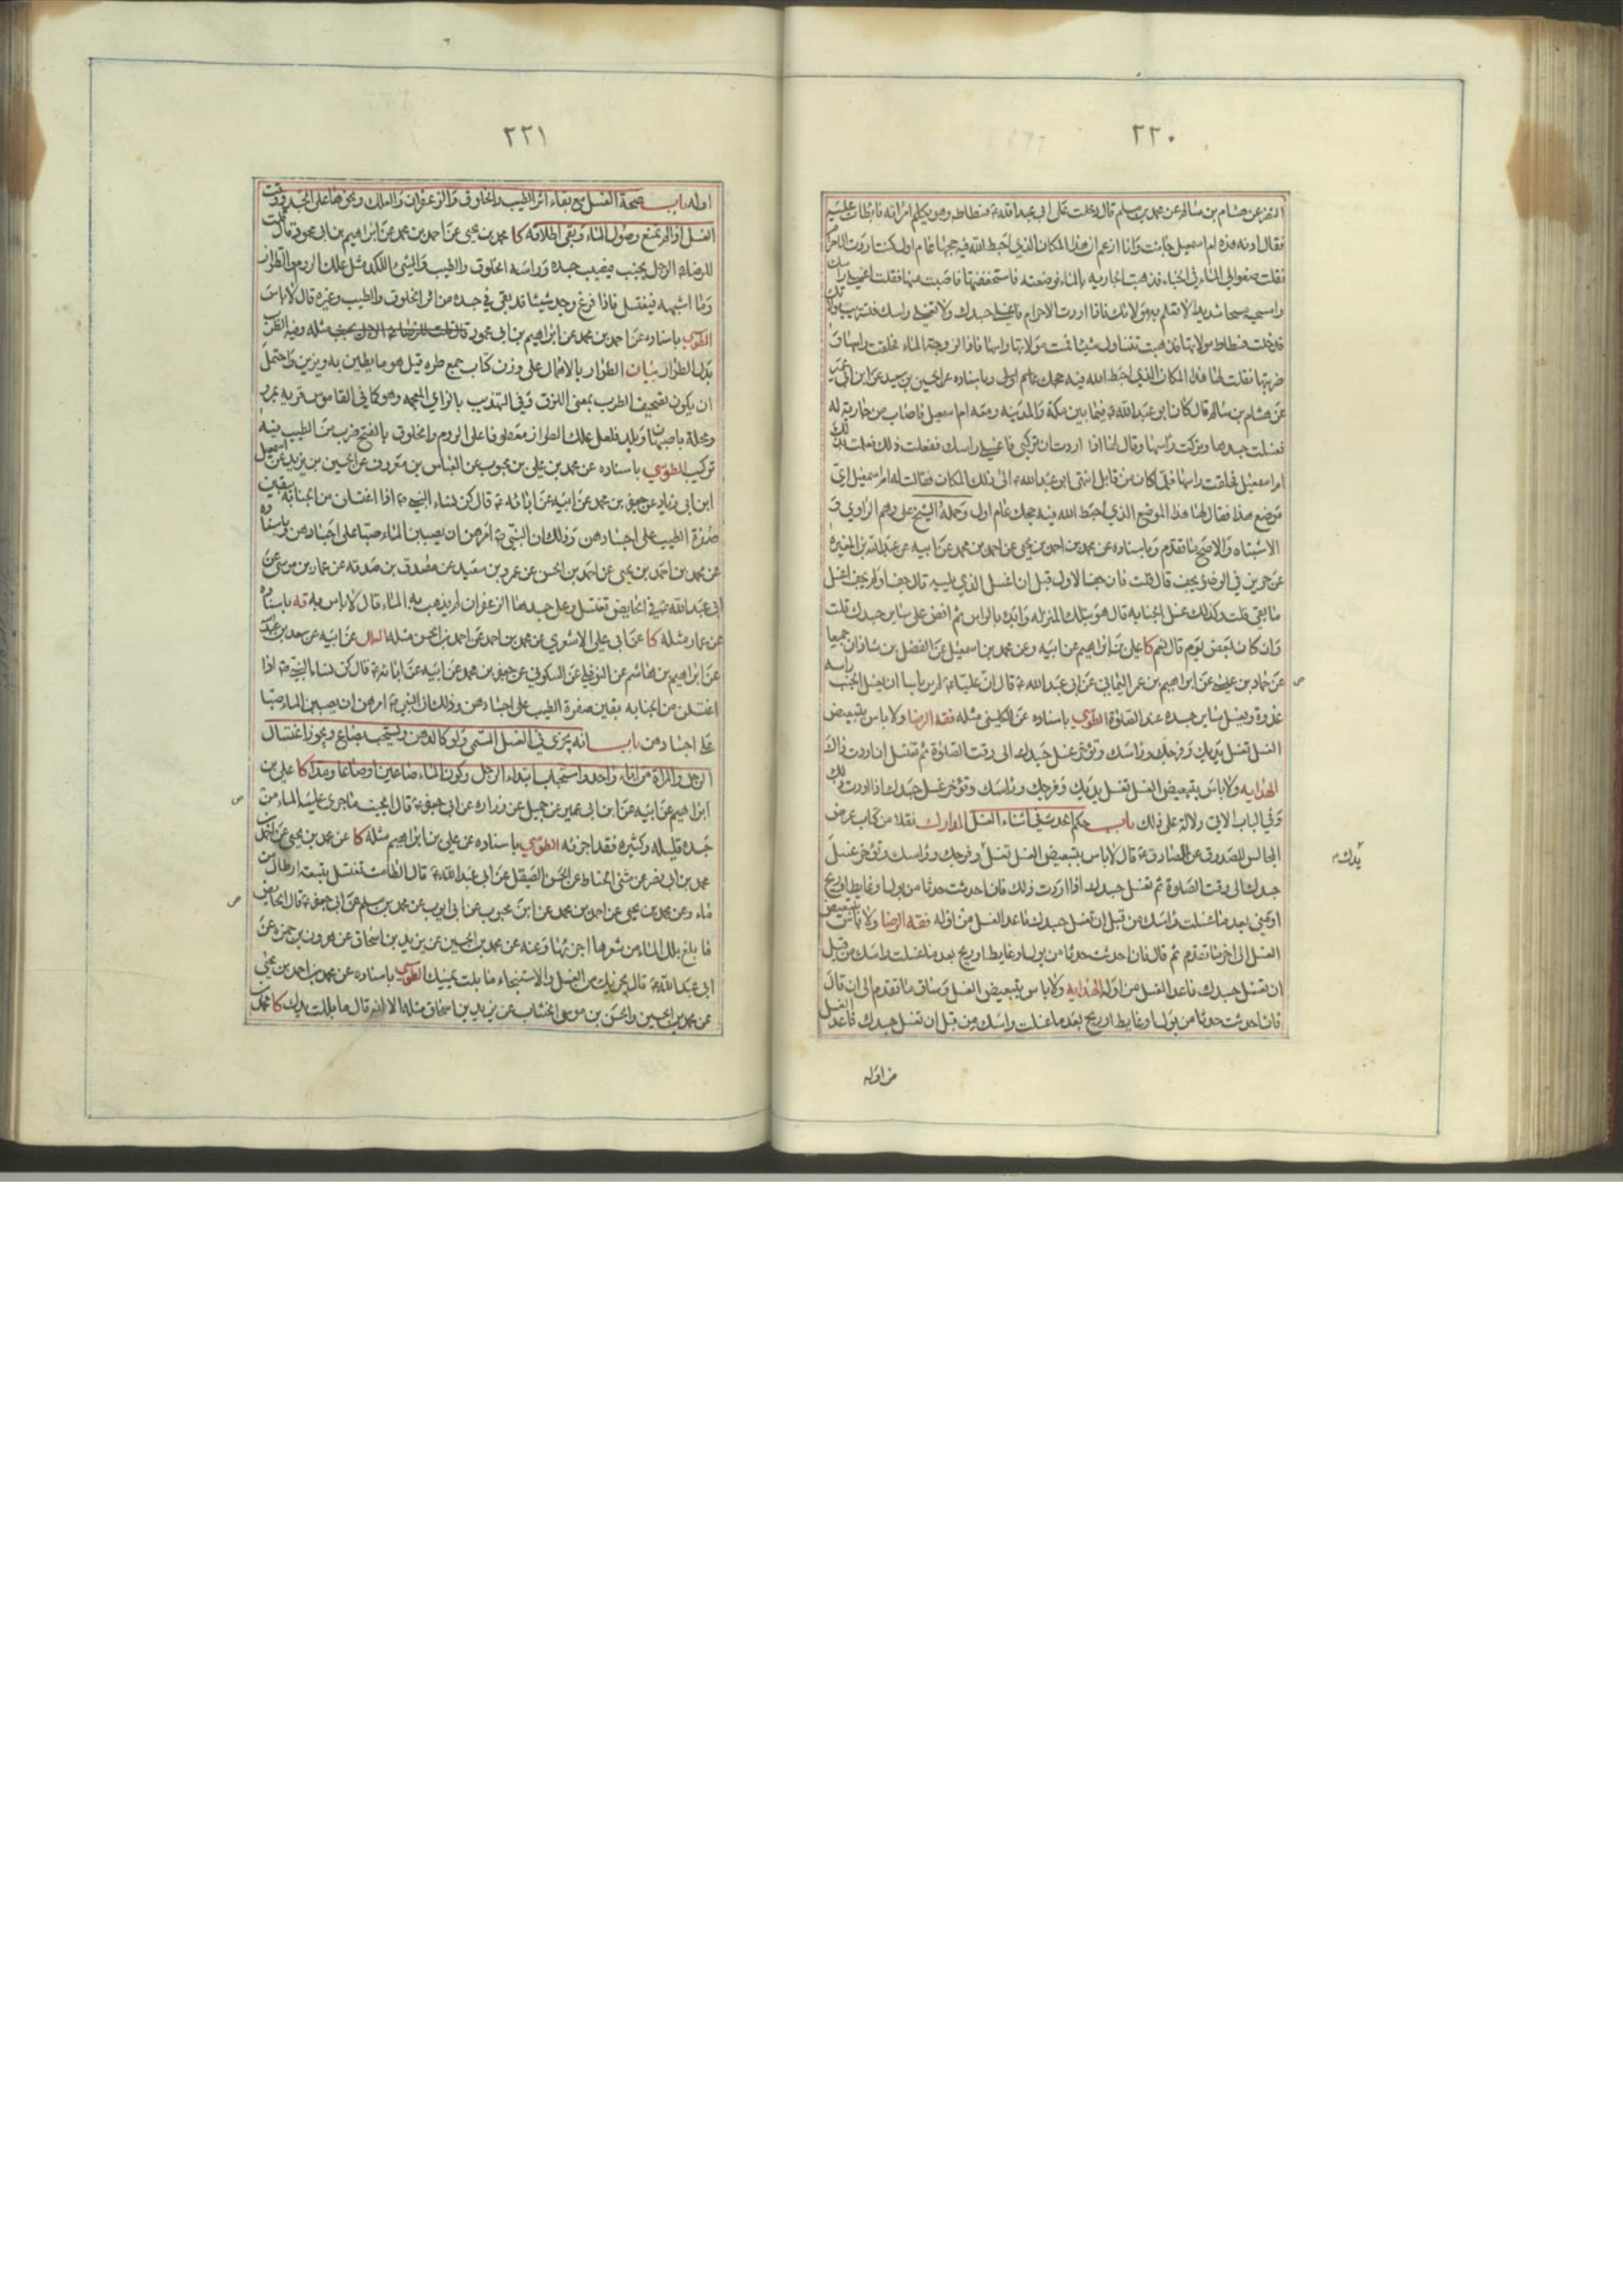 ٢٢٠
النضر عن هشام بن سالم عن محمد بن مسلم قال دخلت على ابي عبد الله ع فسطاطه وهو يكلم امراة فابطات عليه
فقال ادنه هذه ام اسمعيل جائت وانا ازعم ان هذا المكان الذي احبط الله فيه حجها عام اول كنت اردت الاحرام
فقلت ضعوا لي الماء في الخباء فذهبت الجارية بالماء فوضعته فاستخففتها فاصبت منها فقلت اغسلي راسك
وامسحيه مسحا شديدا لا تعلم به مولاتك فاذا اردت الاحرام فاغسلي جسدك ولا تغسلي راسك فتستريب مولاتك
فدخلت فسطاط مولاتها فذهبت تتناول شيئا فمست مولاتها راسها فاذا لزوجة الماء فحلقت راسها و
ضربتها فقلت لها هذا المكان الذي احبط الله فيه حجك عام اول وباسناده عن الحسين بن سعيد عن ابن ابي عمير
عن هشام بن سالم قال كان ابو عبد الله ع فيما بين مكة والمدينة ومعه ام اسمعيل فاصاب من جارية له
فغسلت جسدها وتركت راسها وقال لها اذا اردت ان تركبي فاغسلي راسك ففعلت ذلك فعلمت بذلك
ام اسمعيل فحلقت راسها فلما كان من قابل انتهى ابو عبد الله ع الى ذلك المكان فقالت له ام اسمعيل اي
موضع هذا فقال لها هذا الموضع الذي احبط الله فيه حجك عام اول وحمله الشيخ على وهم الراوي و
الاشتباه والاصح ما تقدم وباسناده عن محمد بن احمد بن يحيى عن احمد بن محمد عن ابيه عن عبد الله بن المغيرة
عن حريز في الوضوء يجف قال قلت فان جف الاول قبل ان اغسل الذي يليه قال جف او لم يجف اغسل
ما بقي قلت وكذلك غسل الجنابة قال هو بتلك المنزله وابدء بالراس ثم افض على ساير جسدك قلت
وان كان بعض يوم قال نعم كا علي بن ابراهيم عن ابيه وعن محمد بن اسمعيل عن الفضل بن شاذان جميعا
عن حماد بن عيسى عن ابراهيم بن عمر اليماني عن ابي عبد الله ع قال ان عليا ع لم ير باسا ان يغسل الجنب راسه
غدوة ويغسل ساير جسده عند الصلوة الطوسي باسناده عن الكليني مثله فقه الرضا ولا باس بتبعيض
الغسل تغسل يديك وفرجك وراسك وتؤخر غسل جسدك الى وقت الصلوة ثم تغسل ان اردت ذلك
الهدايه ولا باس بتبعيض الغسل تغسل يديك وفرجك وراسك وتؤخر غسل جسدك اذا اردت ذلك
وفي الباب الاتي دلالة على ذلك باب حكم الحدث في اثناء الغسل المدارك نقلا من كتاب عرض
المجالس للصدوق عن الصادق ع قال لا باس بتبعيض الغسل تغسل وفرجك وراسك وتؤخر غسل
يدك
جسدك الى وقت الصلوة ثم تغسل جسدك اذا اردت ذلك فان احدثت حدثا من بول او غايط او ريح
او مني بعد ما غسلت راسك من قبل ان تغسل جسدك فاعد الغسل من اوله فقه الرضا ولا باس بتبعيض
الغسل الى اخر ما تقدم ثم قال فان احدثت حدثا من بول او غايط او ريح بعد ما غسلت راسك من قبل
ان تغسل جسدك فاعد الغسل من اوله الهدايه ولا باس بتبعيض الغسل وساق ما تقدم الى ان قال
فان احدثت حدثا من بول او غايط او ريح بعد ما غسلت راسك من قبل ان تغسل جسدك فاعد الغسل
من اوله
٢٢١
اوله باب صحة الغسل مع بقاء اثر الطيب والخلوق والزعفران والعلك ونحوها على الجسد وقت
الغسل اذا لم يمنع وصول الماء وبقى اطلاقه كا محمد بن يحيى عن احمد بن محمد عن ابراهيم بن ابي محمود قال قلت
للرضا ع الرجل يجنب فيصيب جسده وراسه الخلوق والطيب والشئ اللكد مثل علك الروم والطرار
وما اشبهه فيغتسل فاذا فرغ وجد شيئا قد بقي في جسده من اثر الخلوق والطيب وغيره قال لا باس
الطوسي باسناده عن احمد بن محمد عن ابراهيم بن ابي محمود قال قلت للرضا ع الرجل يجنب مثله وفيه الظرب
بدل الطرار بيان الطرار بالاهمال على وزن كتاب جمع طره قيل هو ما يطين به ويزين واحتمل
ان يكون تصحيف الظرب بمعنى اللزق وفي التهذيب بالزاي المعجمه وهو كما في القاموس قرية بمرو
ومحلة باصبهان وبلد فلعل علك الطراز معطوفا على الروم والخلوق بالفتح ضرب من الطيب فيه
تركيب الطوسي باسناده عن محمد بن علي بن محبوب عن العباس بن معروف عن الحسين بن يزيد عن اسمعيل
ابن ابي زياد عن جعفر بن محمد عن ابيه عن ابائه ع قال كن نساء النبي ص اذا اغتسلن من الجنابة يبقين
صفرة الطيب على اجسادهن وذلك ان النبي ص امرهن ان يصببن الماء صبا على اجسادهن وباسناده
عن محمد بن احمد بن يحيى عن احمد بن الحسن عن عمرو بن سعيد عن مصدق بن صدقه عن عمار بن موسى عن
ابي عبد الله ع في الحايض تغتسل وعلى جسدها الزعفران لم يذهب به الماء قال لا باس به فه باسناده
عن عمار مثله كا عن ابي علي الاشعري عن محمد بن احمد عن احمد بن الحسن مثله العلل عن ابيه عن سعد بن عبد الله
عن ابراهيم بن هاشم عن النوفلي عن السكوني عن جعفر بن محمد عن ابيه عن ابائه ع قال كن نساء النبي ص اذا
اغتسلن من الجنابه يبقين صفرة الطيب على اجسادهن وذلك ان النبي ص امرهن ان يصببن الماء صبا
على اجسادهن باب انه يجزي في الغسل المسمى ولو كالدهن ويستحب بصاع ويجوز اغتسال
الرجل والمراة من اناء واحد واستحباب ابتداء الرجل وكون الماء صاعين او صاعا ومدا كا علي بن
ابراهيم عن ابيه عن ابن ابي عمير عن جميل عن زراره عن ابي جعفر ع قال الجنب ما جرى عليه الماء من
جسده قليله وكثيره فقد اجزئه الطوسي باسناده عن علي بن ابراهيم مثله كا عن محمد بن يحيى عن احمد بن
محمد بن ابي نصر عن مثنى الحناط عن الحسن الصيقل عن ابي عبد الله ع قال الطامث تغتسل بتسعة ارطال من
ماء وعن محمد بن يحيى عن احمد بن محمد عن ابن محبوب عن ابي ايوب عن محمد بن مسلم عن ابي جعفر ع قال الحايض
ما بلغ بلل الماء من شعرها اجزئها وعنه عن محمد بن الحسين عن يزيد بن اسحاق عن هرون بن حمزه عن
ابي عبد الله ع قال يجزيك من الغسل والاستنجاء ما بلت يمينك الطوسي باسناده عن محمد بن احمد بن يحيى
عن محمد بن الحسين والحسن بن موسى الخشاب عن يزيد بن اسحاق مثله الا انه قال ما بللت يدك كا محمد بن